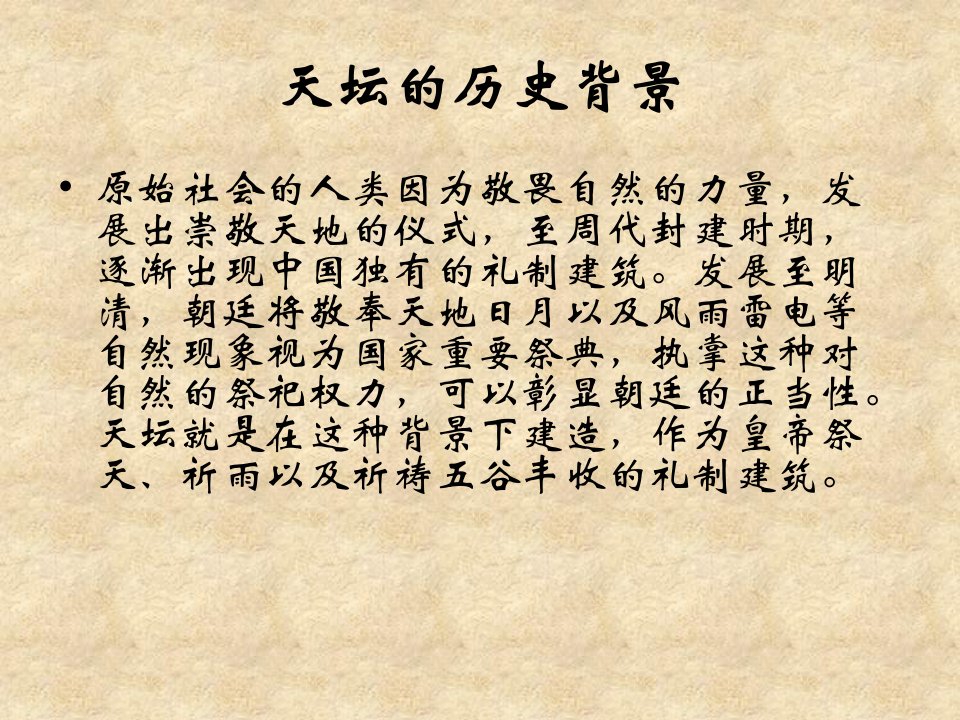 天坛的历史背景
• 原始社会的人类因为敬畏自然的力量，发
展出崇敬天地的仪式，至周代封建时期，
逐渐出现中国独有的礼制建筑。发展至明
清，朝廷将敬奉天地日月以及风雨雷电等
自然现象视为国家重要祭典，执掌这种对
自然的祭祀权力，可以彰显朝廷的正当性。
天坛就是在这种背景下建造，作为皇帝祭
天、祈雨以及祈祷五谷丰收的礼制建筑。